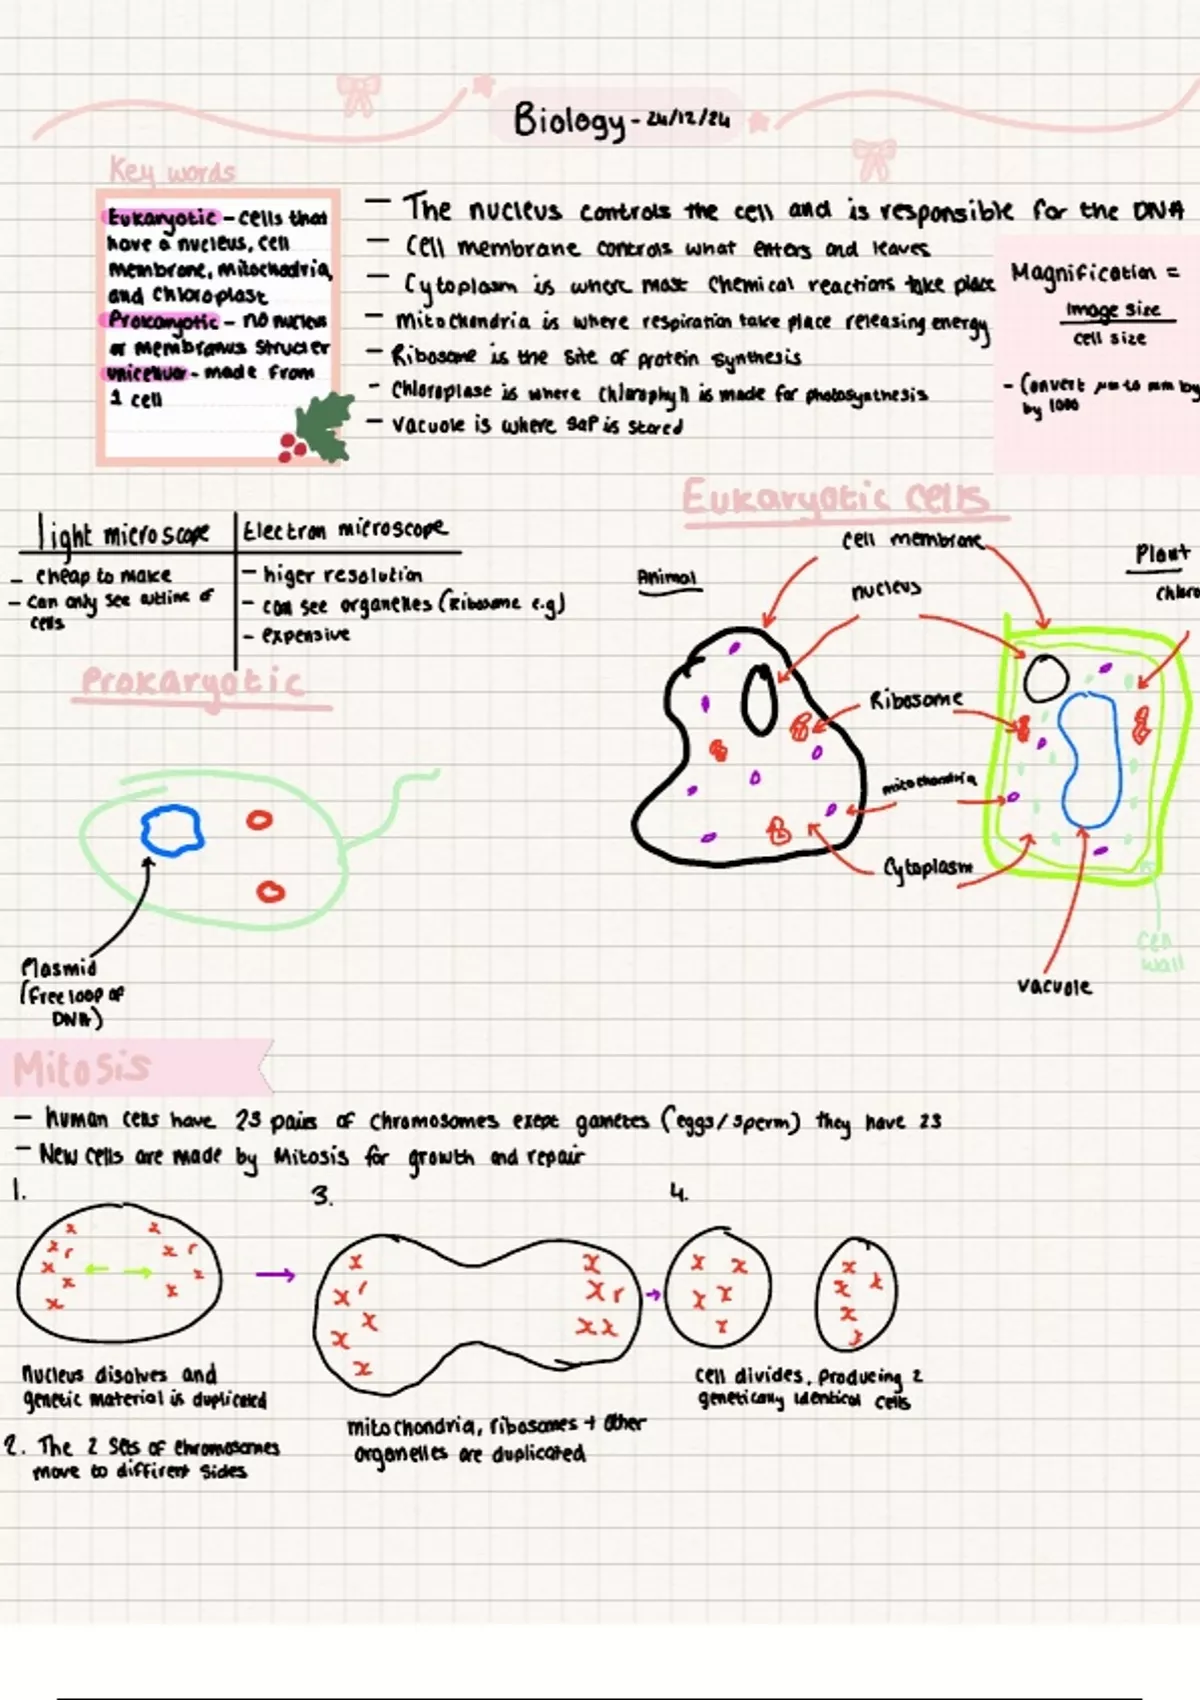 Biology - 24/12/24
Key words
Eukaryotic - cells that
have a nucleus, cell
membrane, mitochadria,
and chloroplast
Prokaryotic - no nucleus
or membranus structer
unicelluar - made from
1 cell
- The nucleus controls the cell and is responsible for the DNA
- Cell membrane controls what enters and leaves
- Cytoplasm is where most chemical reactions take place
- mitochondria is where respiration take place releasing energy
- Ribosome is the site of protein synthesis
- Chloroplase is where chlorophyll is made for photosynthesis
- vacuole is where sap is stored
Magnification =
image size
cell size
- Convert μm to mm by
by 1000
light microscope
- cheap to make
- can only see outline of
cells
Electron microscope
- higer resolution
- can see organelles (ribosome e.g)
- expensive
Prokaryotic
Plasmid
(free loop of
DNA)
Eukaryotic cells
Animal
Plant
cell membrane
nucleus
chloro
Ribosome
mitochondria
Cytoplasm
cell
wall
vacuole
Mitosis
- human cells have 23 pairs of chromosomes exept gametes (eggs/sperm) they have 23
- New cells are made by Mitosis for growth and repair
1.
3.
4.
nucleus disolves and
genetic material is duplicated
2. The 2 sets of chromosomes
move to diffirent sides
mitochondria, ribosomes + other
organelles are duplicated
cell divides, producing 2
genetically identical cells